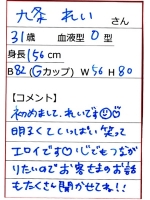 九条 れい さん
31歳 血液型 O型
身長156cm
B82(Gカップ) W56 H80
【コメント】
初めまして、れいです☺♡
明るくていっぱい笑って
エロイです♡いじでもつなが
りたいのでお客さまのお話
もたくさん聞かせてね!!